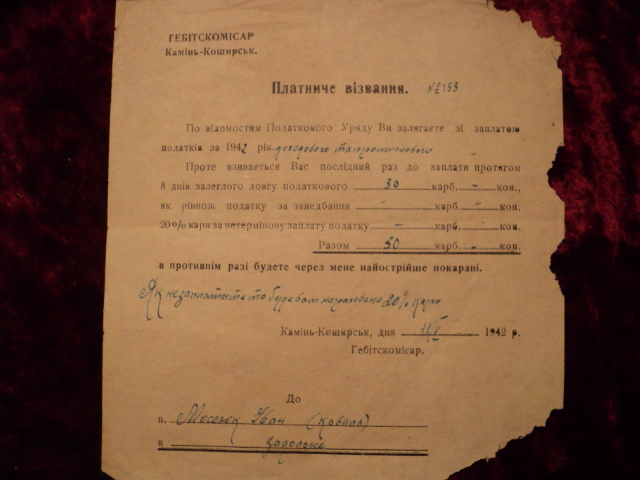 ҐЕБІТСКОМІСАР
Камінь-Коширськ.
Платниче візвання. № 133
По відомостям Податкового Уряду Ви залягаєте зі заплатою
податків за 1942 рік доходового та промислового
Проте взивається Вас послідний раз до заплати протягом
8 днів залеглого довгу податкового 30 карб. - коп.,
як рівнож податку за занедбання - карб. - коп.
20% кари за нетермінову заплату податку - карб. - коп.
Разом 30 карб. - коп.
в противнім разі будете через мене найострійше покарані.
Як незаплатите то буде вам нараховано 20% кари
Камінь-Коширськ, дня 11/V 1942 р.
Гебітскомісар.
До
п. Иван (коваль)
в